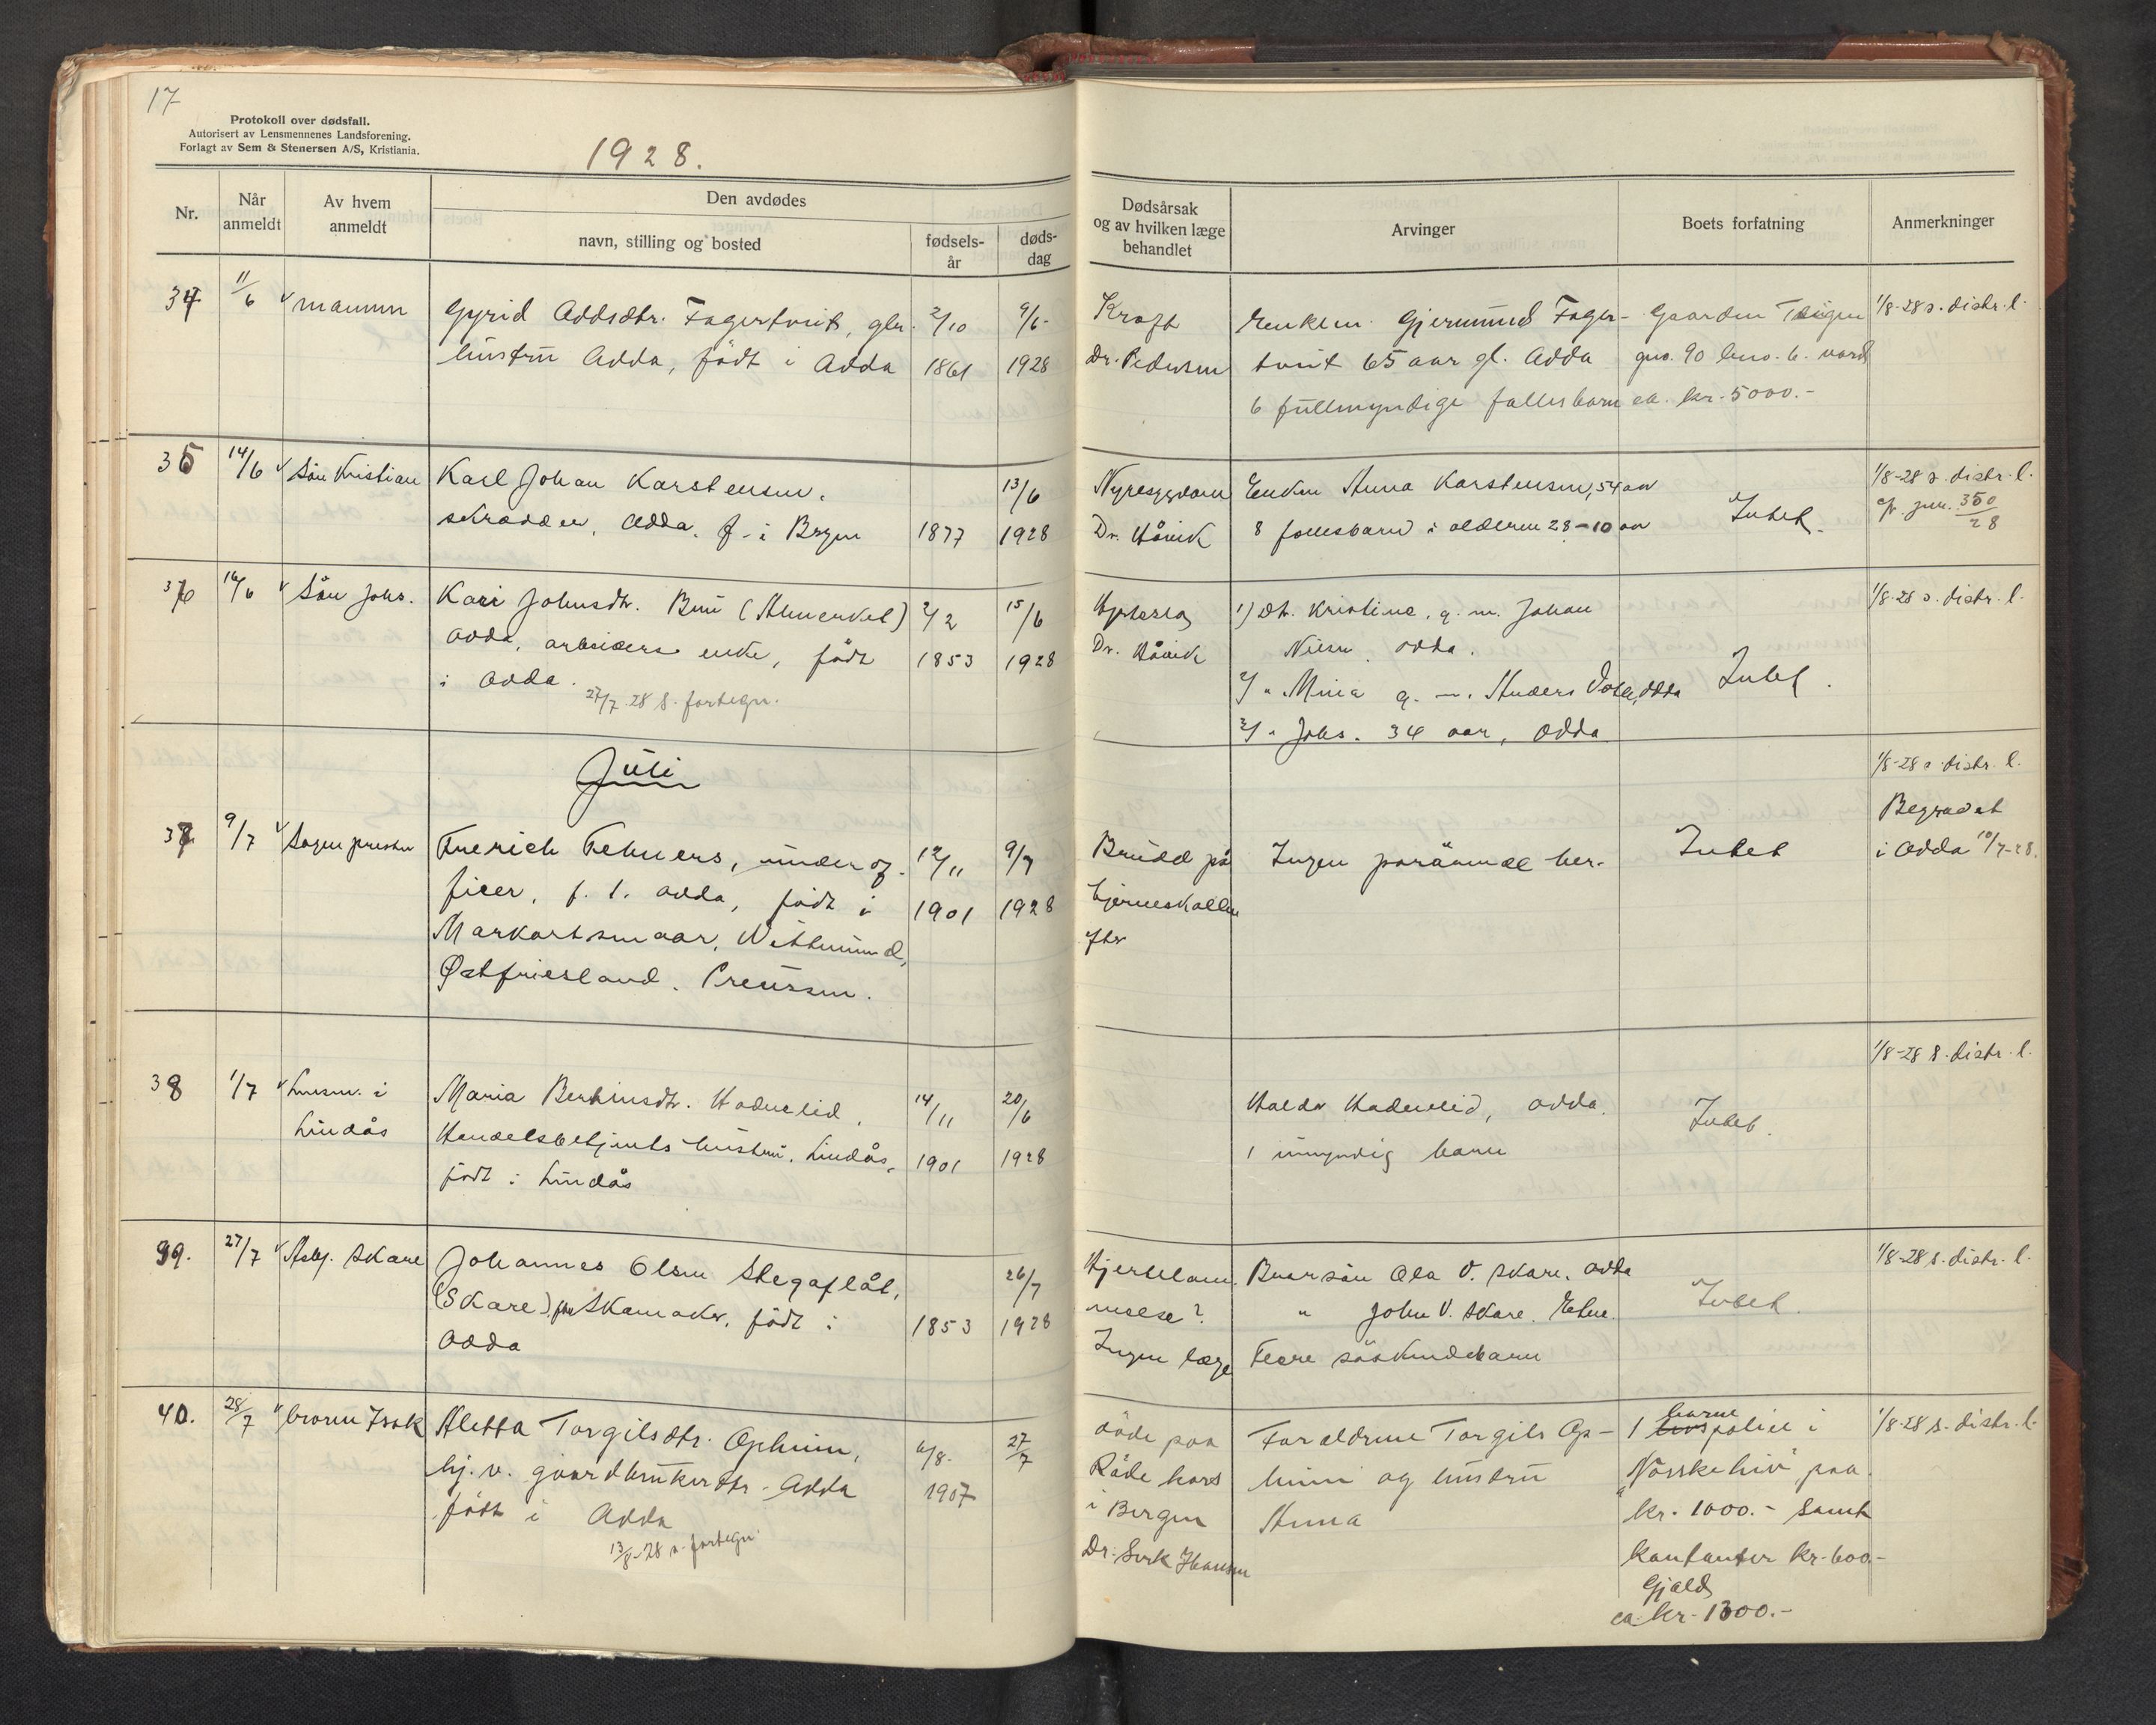 17
Protokoll over dødsfall.
Autorisert av Lensmennenes Landsforening.
Forlagt av Sem & Stenersen A/S, Kristiania.
1928.
Nr.
Når anmeldt
Av hvem anmeldt
Den avdødes
navn, stilling og bosted
fødsels-år
døds-dag
Dødsårsak og av hvilken læge behandlet
Arvinger
Boets forfatning
Anmerkninger
34 11/6 mannen
Gyrid Oddsdtr. Fagertveit, gbr. 2/10 9/6-
hustru Odda, født i Odda 1861 1928
Kræft
Dr. Pedersen
Enkem. Gjermund Fager-
tveit 65 aar gl. Odda
6 fullmyndige fællesbarn
Gaarden
gno. 90 bno. 6. værd
ca. kr. 5000.-
1/8-28 s. distr. l.
35 14/6 Søn Kristian
Karl Johan Karstensen, 13/6
skrædder, Odda. f. i Bergen 1877 1928
Nyresygdom
Dr. Håvik
Enken Anna Karstensen, 54 aar
8 fællesbarn i alderen 28-10 aar
Intet.
1/8-28 s. distr. l.
350
28
36 16/6 Søn Johs.
Kari Johnsdtr. Bu 2/2 15/6
Odda, arbeiders enke, født 1853 1928
i Odda.
27/7-28 s. fortegn.
Dr. Håvik
1) Dtr. Kristine, g. m. Johan
Odda.
2) " Mina g. m. Anders Odda
3) " Johs. 34 aar, Odda
Intet.
1/8-28 s. distr. l.
Juli
37 9/7 Sognepresten
Frerich Fehners, underof- 12/11 9/7
ficer, f. t. Odda, født i 1901 1928
Wittmund,
Østfriesland. Preussen.
Brudd på
hjerneskallen
Ingen pårørende her.
Intet
1/8-28 s. distr. l.
Begravet
i Odda 10/7-28.
38 1/7 Lensm. i
Lindås
Maria Bertinsdtr. Haduslid, 14/11 20/6
Handelsbetjents hustru. Lindås, 1901 1928
født i Lindås
Odda.
1 umyndig barn
Intet.
1/8-28 s. distr. l.
39. 27/7 Asbj. Skare
Johannes Olsen Stegaflåt, 26/7
(Skare) Skomaker, født i 1853 1928
Odda
Hjertelam-
melse?
Ingen læge
Brorsøn Ola O. Skare, Odda
" John O. Skare. Etne.
Flere søskendebarn
Intet.
1/8-28 s. distr. l.
40. 28/7 broren Isak
Aletta Torgilsdtr. Opheim, 6/8- 27/7
hj. v. gaardbrukerdtr. Odda 1907
født i Odda
13/8-28 s. fortegn.
døde paa
Røde kors
i Bergen
Forældrene Torgils Op-
heim og hustru
Anna
barne
1 livspolice i
"Norske liv" paa
kr. 1000.- samt
kontanter kr. 600.-
Gjæld
ca. kr. 1300.-
1/8-28 s. distr. l.